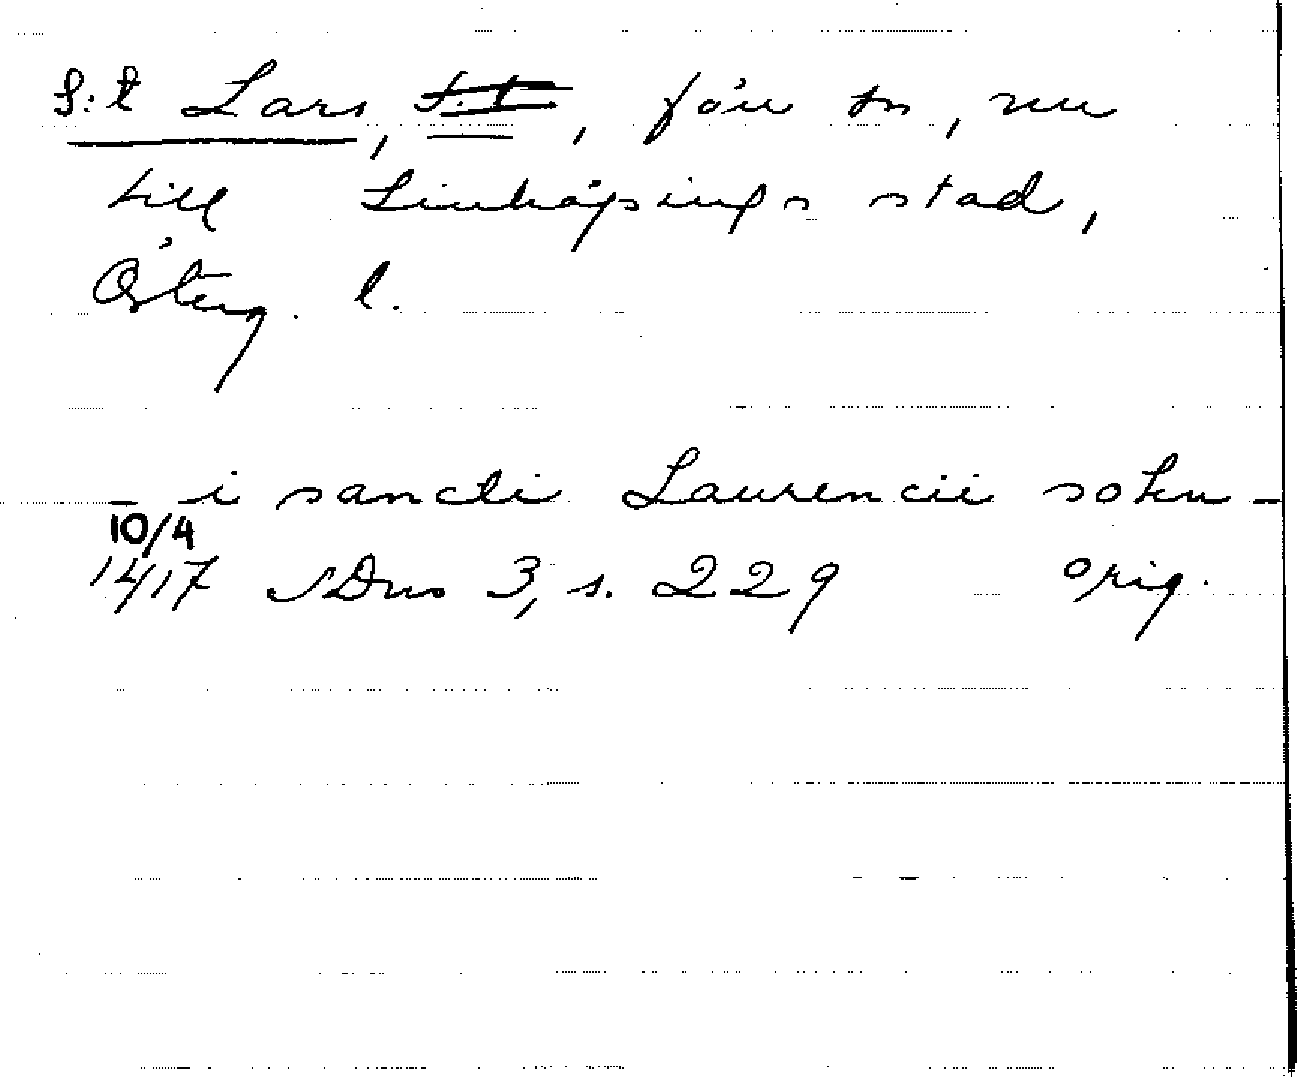 S:t Lars, S:t, förr sn, nu
till Linköpings stad,
Österg. l.
_ i sancti Laurencii sokn _
10/4
1417 SDns 3, s. 229 orig.